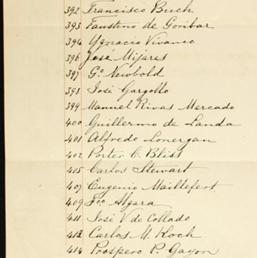 392 Francisco Buch
393 Faustino de Goribar
394 Ygnacio Vivanco
396 José Mijares
397 G. Newbold
398 José Gargollo
399 Manuel Rivas Mercado
400 Guillermo de Landa
401 Alfredo Lonergan
402 Porter C. Bliss
405 Carlos Stewart
407 Eugenio Maillefert
409 Algara
411 José V. de Collado
413 Carlos M. Koch
414 Prospero P. Gayon